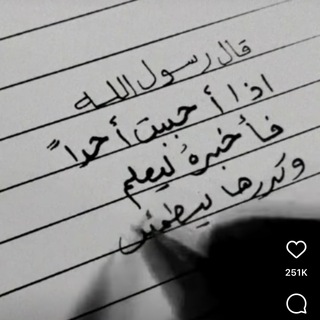 قال رسول الله
اذا أحببت أحداً
فأخبرهُ ليعلم
وكررها ليطمئن
251K